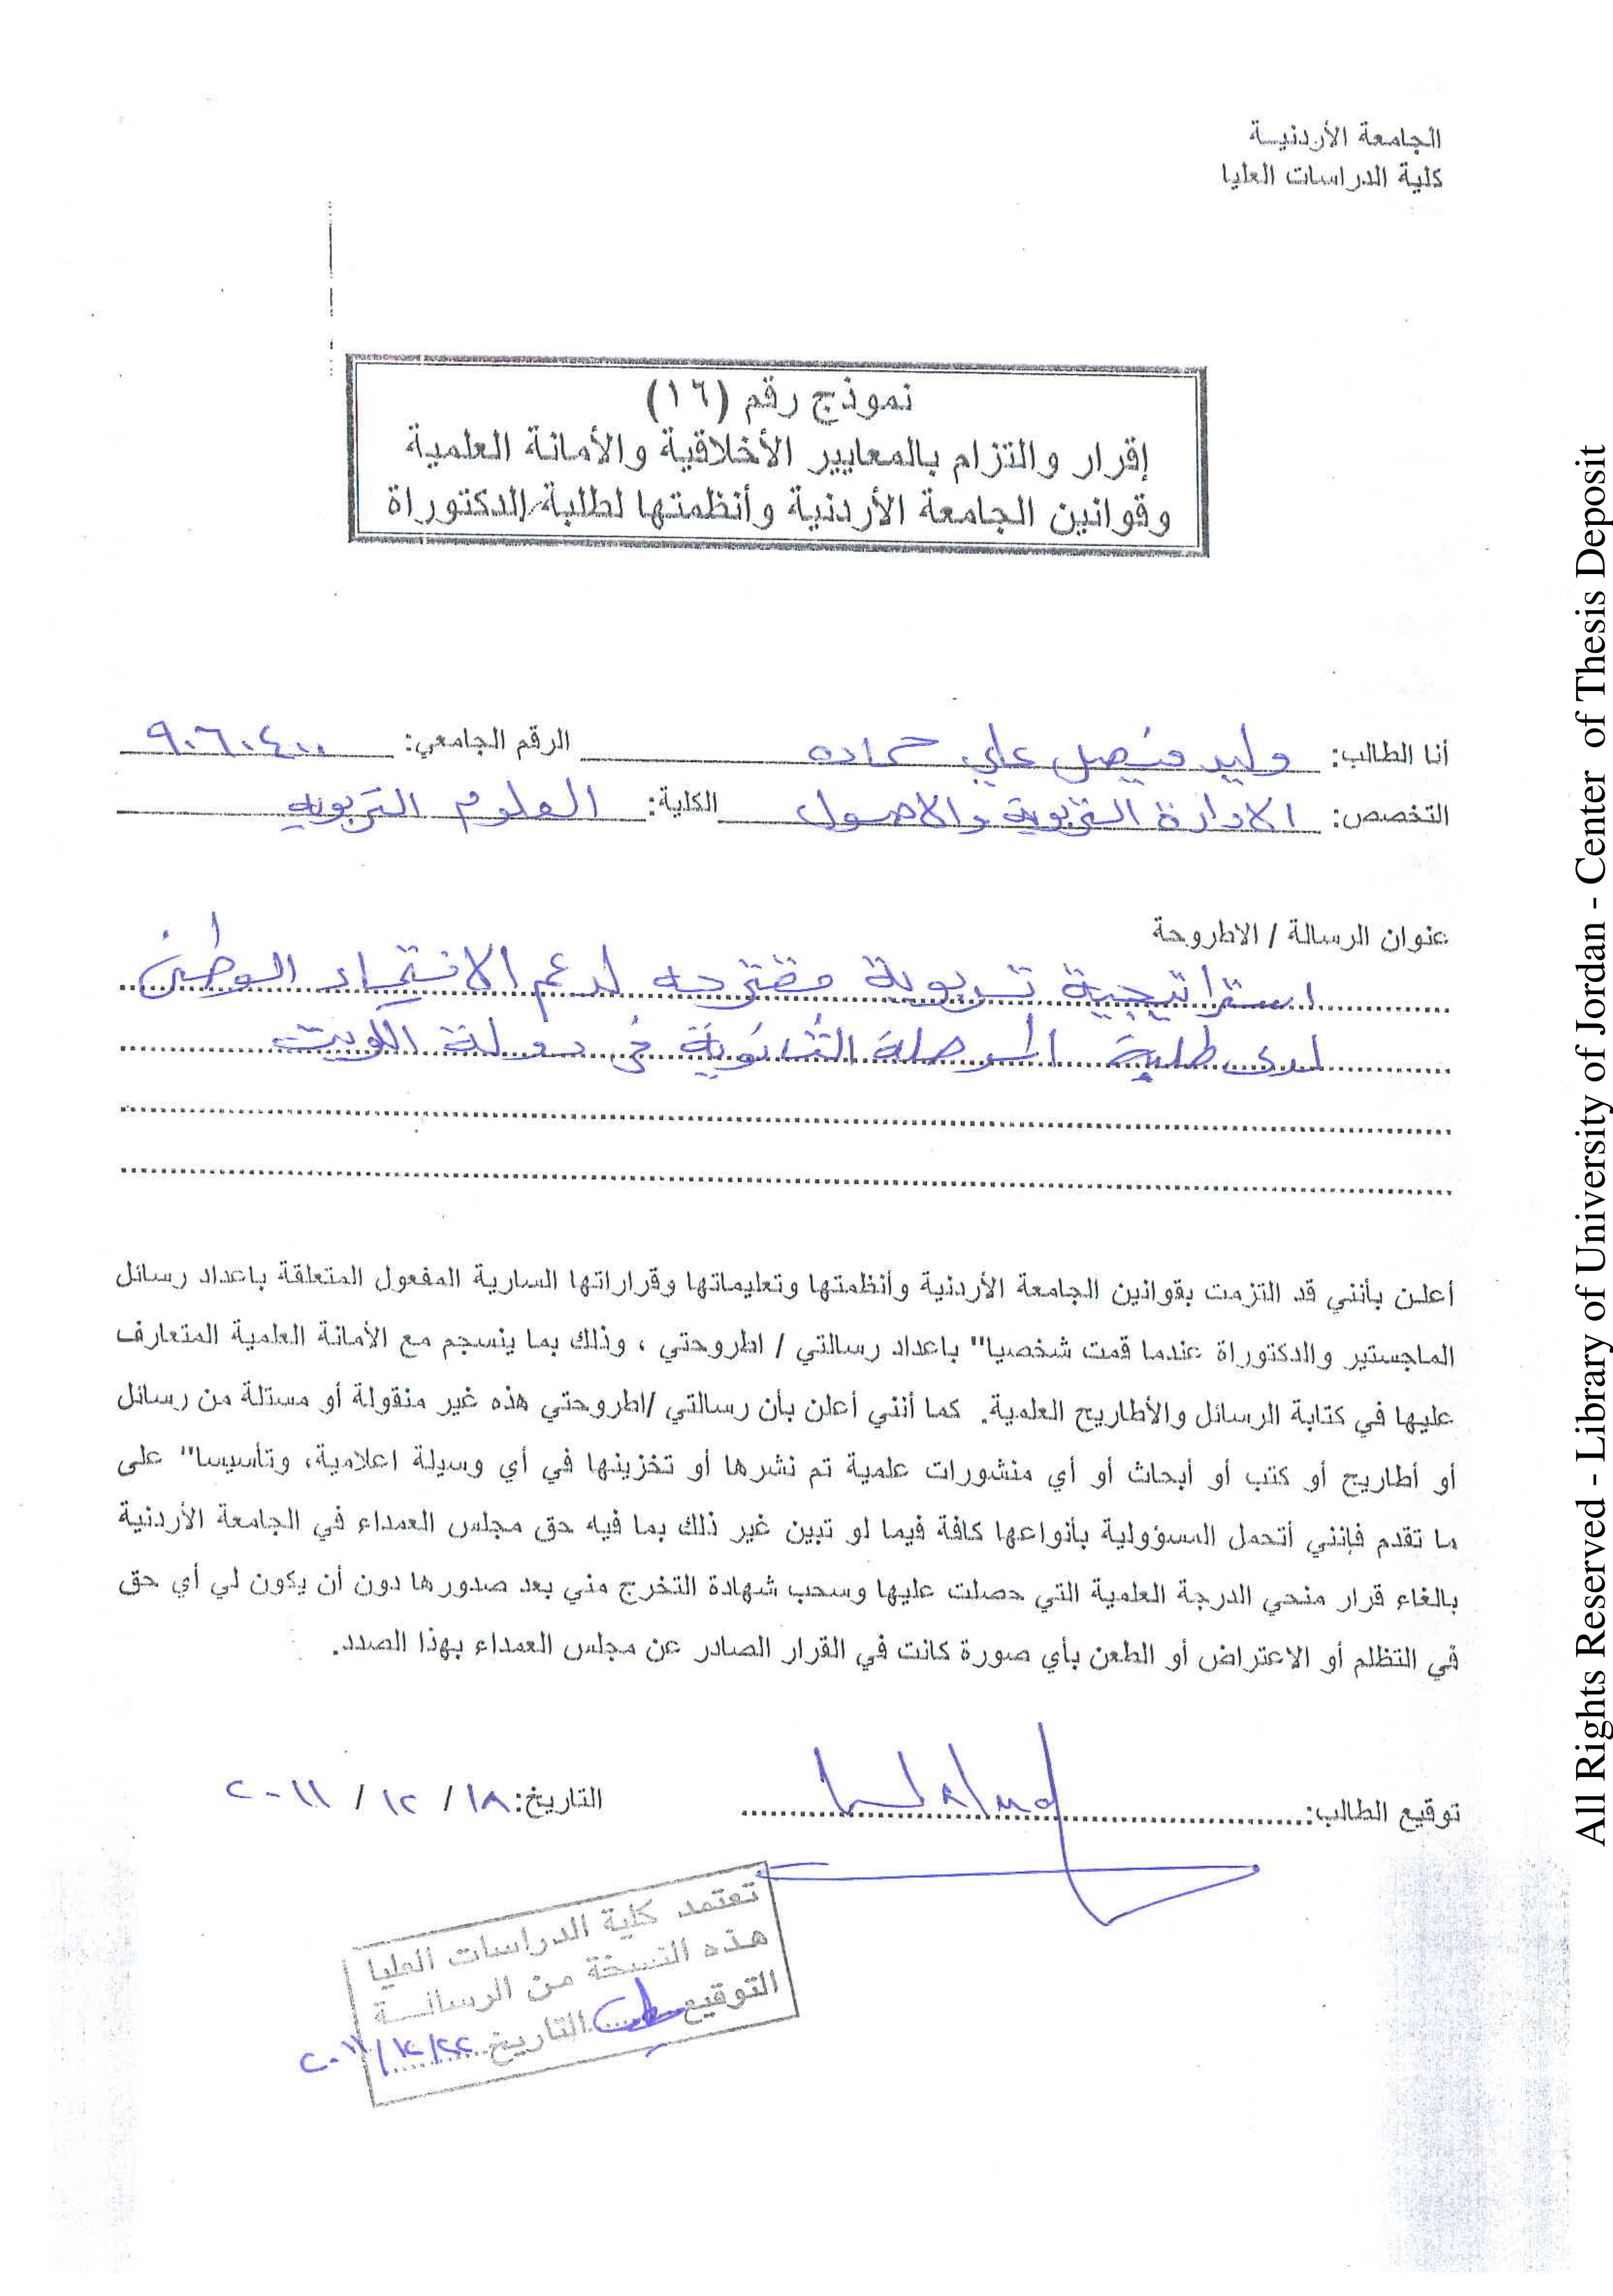 الجامعة الأردنيـة
كلية الدراسات العليا
نموذج رقم (١٦)
إقرار والتزام بالمعايير الأخلاقية والأمانة العلمية
وقوانين الجامعة الأردنية وأنظمتها لطلبة الدكتوراة
أنا الطالب: وليد فيصل علي حماده الرقم الجامعي: ٩٠٦٠٤٠٠
التخصص: الادارة التربوية والاصول الكلية: العلوم التربويه
عنوان الرسالة / الاطروحة
استراتيجية تربوية مقترحه لدعم الانتماء الوطني
لدى طلبة المرحلة الثانوية في دولة الكويت
أعلـن بأنني قد التزمت بقوانين الجامعة الأردنية وأنظمتها وتعليماتها وقراراتها السارية المفعول المتعلقة باعداد رسائل
الماجستير والدكتوراة عندما قمت شخصيا" باعداد رسالتي / اطروحتي ، وذلك بما ينسجم مع الأمانة العلمية المتعارف
عليها في كتابة الرسائل والأطاريح العلمية. كما أنني أعلن بأن رسالتي /اطروحتي هذه غير منقولة أو مستلة من رسائل
أو أطاريح أو كتب أو أبحاث أو أي منشورات علمية تم نشرها أو تخزينها في أي وسيلة اعلامية، وتأسيسا" على
ما تقدم فإنني أتحمل المسؤولية بأنواعها كافة فيما لو تبين غير ذلك بما فيه حق مجلس العمداء في الجامعة الأردنية
بالغاء قرار منحي الدرجة العلمية التي حصلت عليها وسحب شهادة التخرج مني بعد صدورها دون أن يكون لي أي حق
في التظلم أو الاعتراض أو الطعن بأي صورة كانت في القرار الصادر عن مجلس العمداء بهذا الصدد.
توقيع الطالب: التاريخ: ١٨ / ١٢ / ٢٠١١
تعتمد كلية الدراسات العليا
هذه النسخة من الرسالـــة
التوقيع التاريخ ٢٠١١/١٢/٢٢
All Rights Reserved - Library of University of Jordan - Center of Thesis Deposit